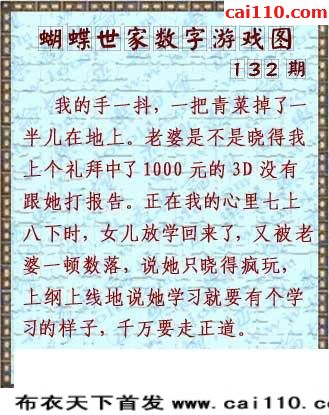 cai110.com
蝴蝶世家数字游戏图
132期
我的手一抖，一把青菜掉了一
半儿在地上。老婆是不是晓得我
上个礼拜中了1000元的3D没有
跟她打报告。正在我的心里七上
八下时，女儿放学回来了，又被老
婆一顿数落，说她只晓得疯玩，
上纲上线地说她学习就要有个学
习的样子，千万要走正道。
布衣天下首发 www.cai110.c